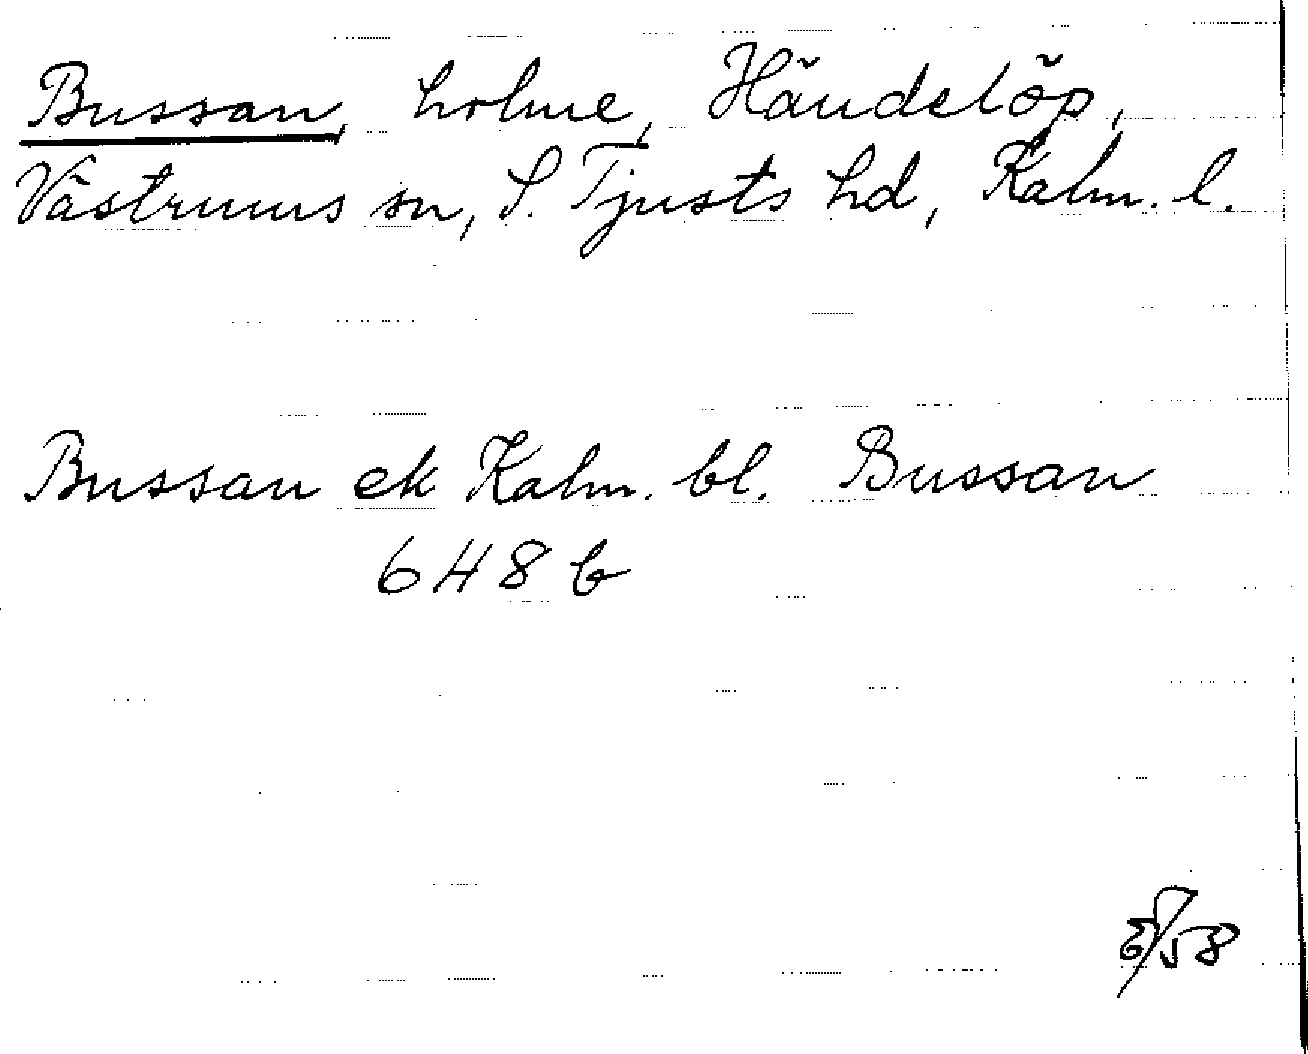 Bussan, holme, Händelöp,
Västrums sn, S. Tjusts hd, Kalm. l.
Bussan ek Kalm. bl. Bussan
648 b
/58